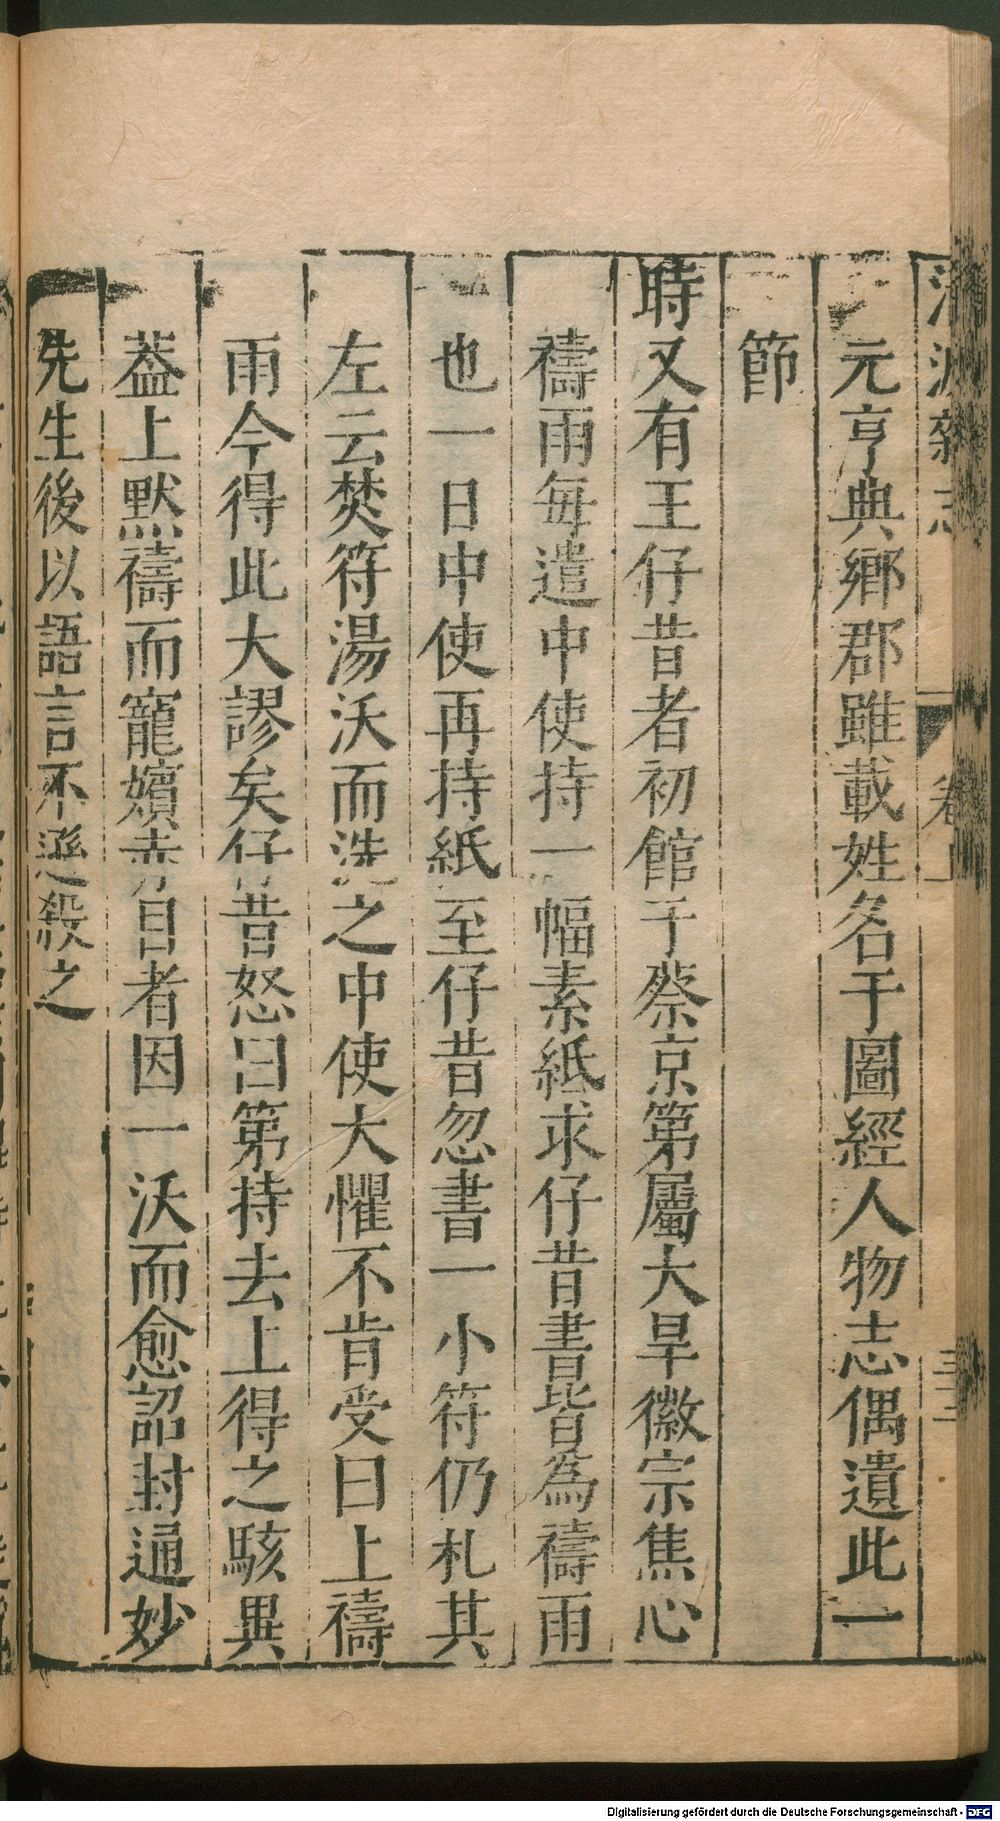 元亨典鄉郡雖載姓名于圖經人物志偶遺此一
節
時又有王仔昔者初館于蔡京第屬大旱徽宗焦心
禱雨每遣中使持一幅素紙求仔昔書皆為禱雨
也一日中使再持紙至仔昔忽書一小符仍札其
左云焚符湯沃而洗之中使大懼不肯受曰上禱
雨今得此大謬矣仔昔怒曰第持去上得之駭異
葢上默禱而寵嬪赤目者因一沃而愈詔封通妙
先生後以語言不遜殺之
Digitalisierung gefördert durch die Deutsche Forschungsgemeinschaft - DFG